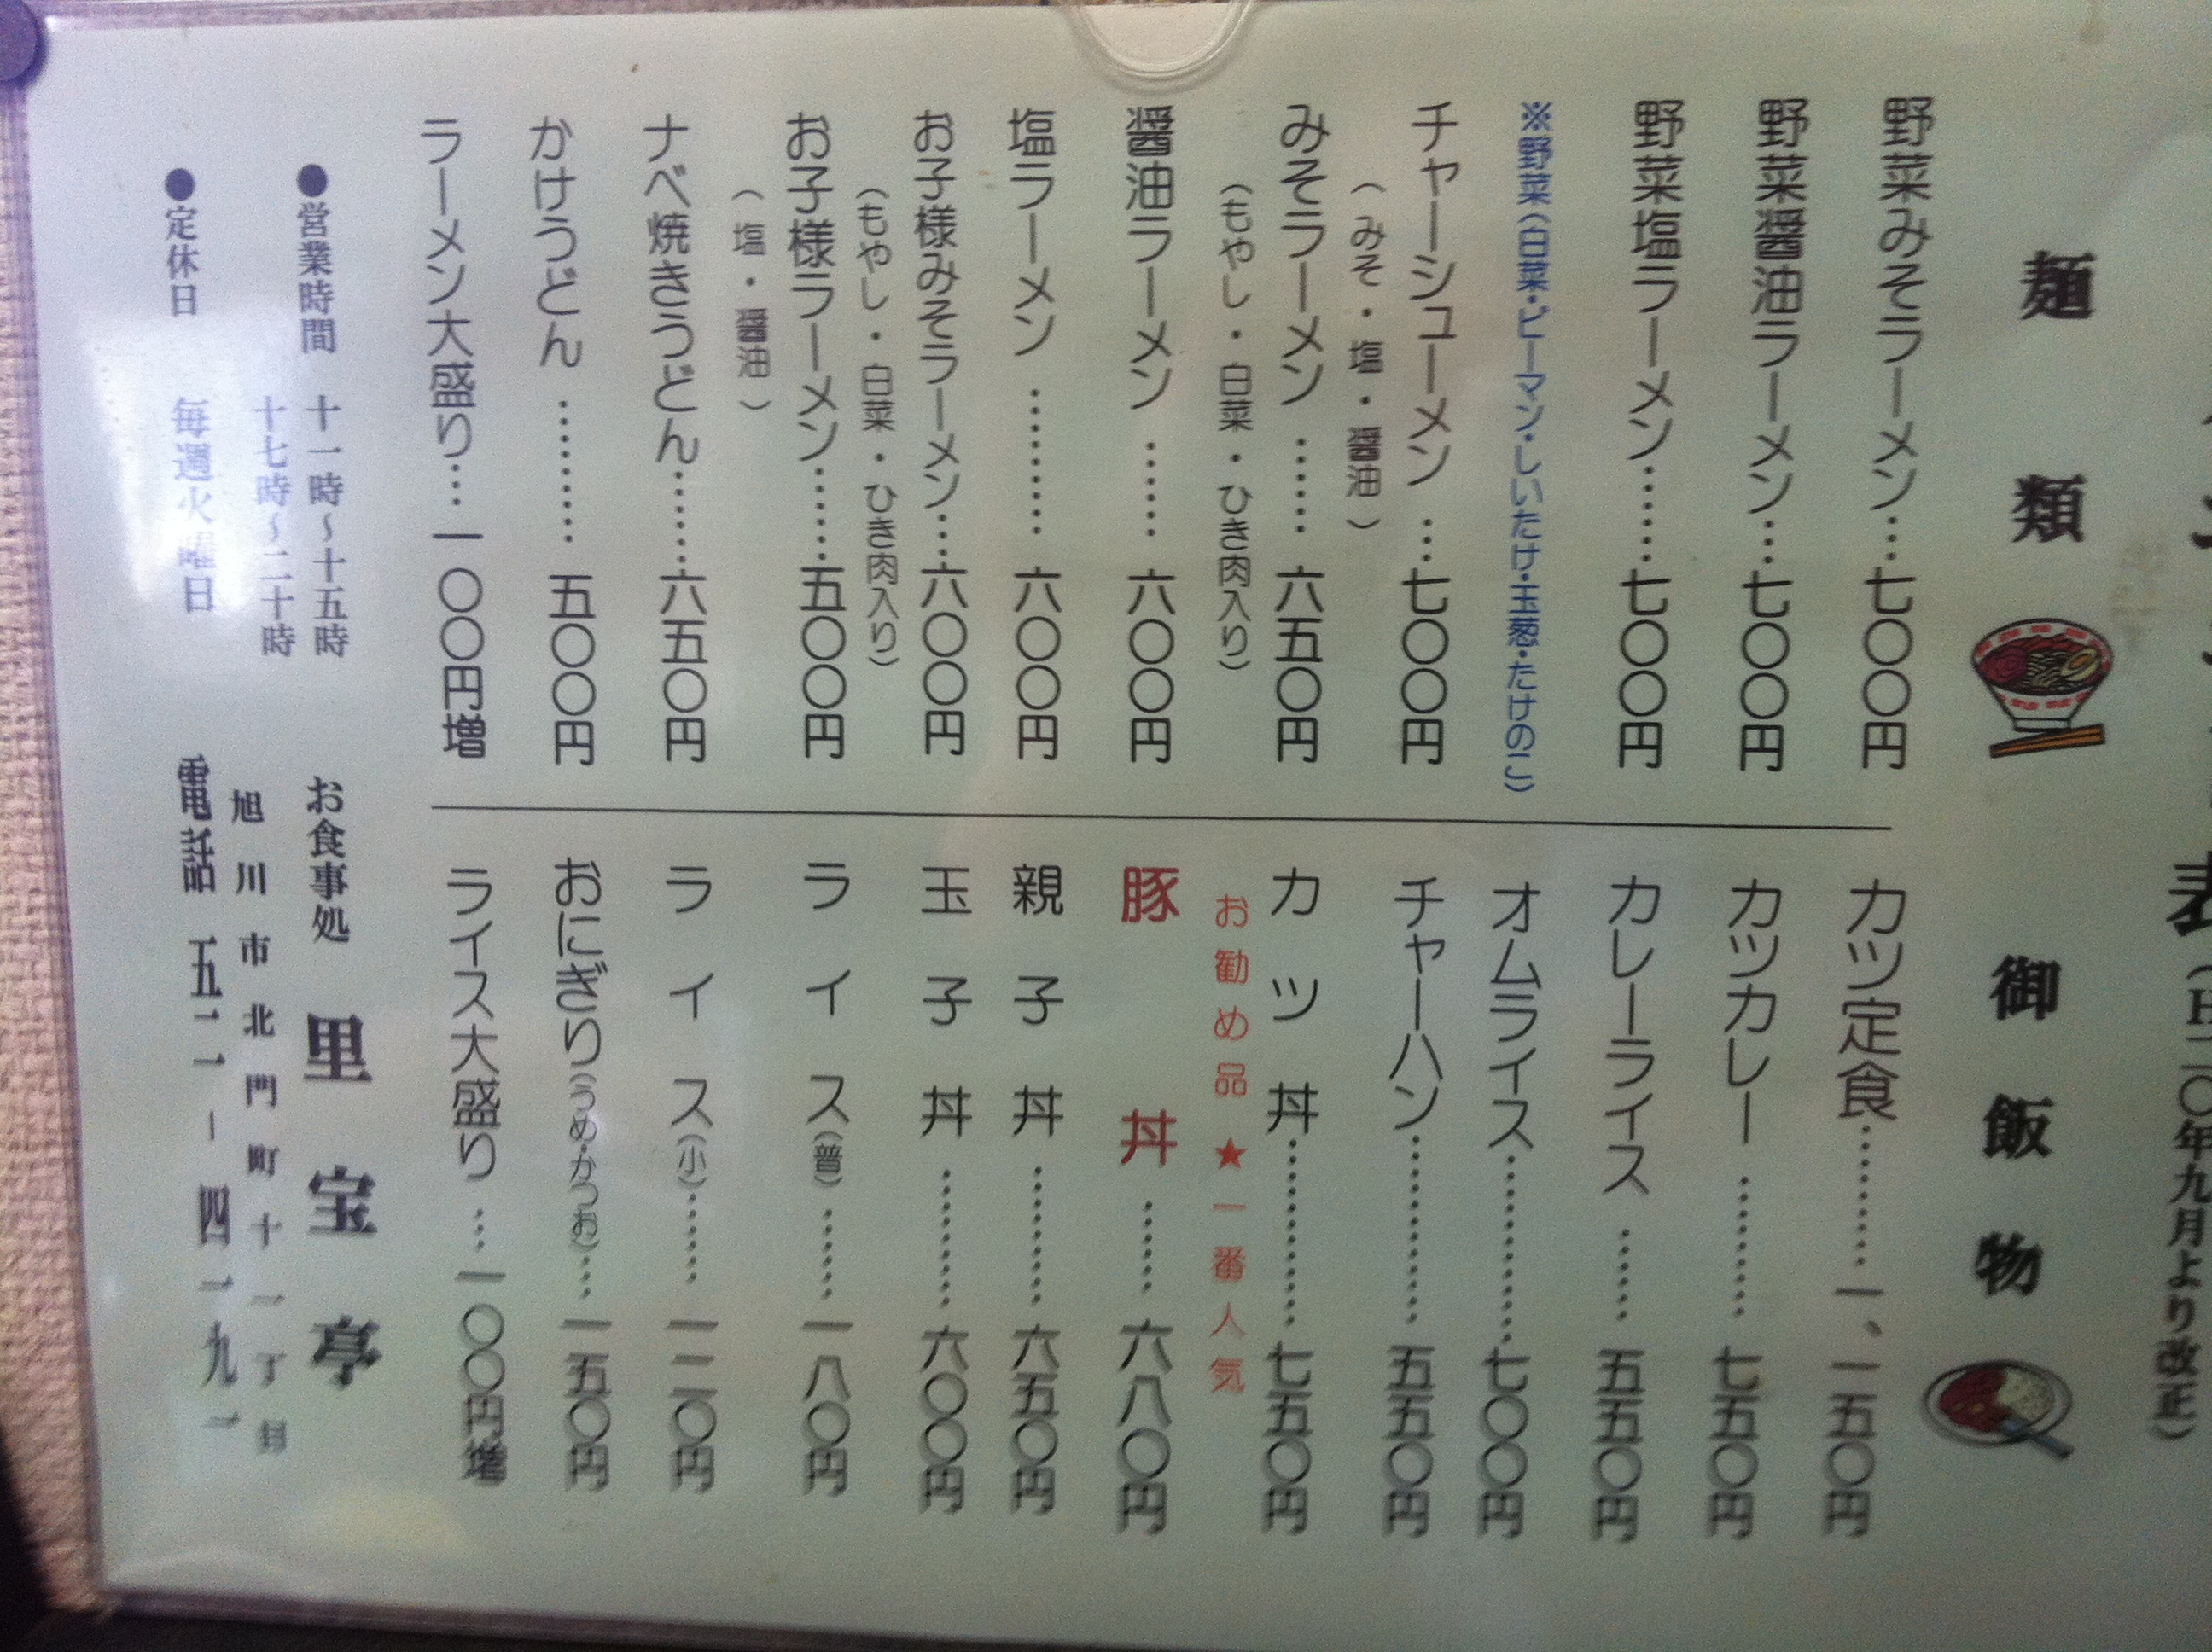 表(H二〇年九月より改正)
麺類
野菜みそラーメン…七〇〇円
野菜醤油ラーメン…七〇〇円
野菜塩ラーメン……七〇〇円
※野菜(白菜・ピーマン・しいたけ・玉葱・たけのこ)
チャーシューメン…七〇〇円
(みそ・塩・醤油)
みそラーメン……六五〇円
(もやし・白菜・ひき肉入り)
醤油ラーメン……六〇〇円
塩ラーメン………六〇〇円
お子様みそラーメン…六〇〇円
(もやし・白菜・ひき肉入り)
お子様ラーメン……五〇〇円
(塩・醤油)
ナベ焼きうどん……六五〇円
かけうどん………五〇〇円
ラーメン大盛り…一〇〇円増
御飯物
カツ定食………一、一五〇円
カツカレー………七五〇円
カレーライス……五五〇円
オムライス…………七〇〇円
チャーハン…………五五〇円
カツ丼…………七五〇円
お勧め品★一番人気
豚丼……六八〇円
親子丼………六五〇円
玉子丼………六〇〇円
ライス(普)……一八〇円
ライス(小)……一二〇円
おにぎり(うめ・かつお)…一五〇円
ライス大盛り…一〇〇円増
●営業時間 十一時~十五時
十七時~二十時
●定休日 毎週火曜日
お食事処 里宝亭
旭川市北門町十一丁目
電話 五二一四一九一